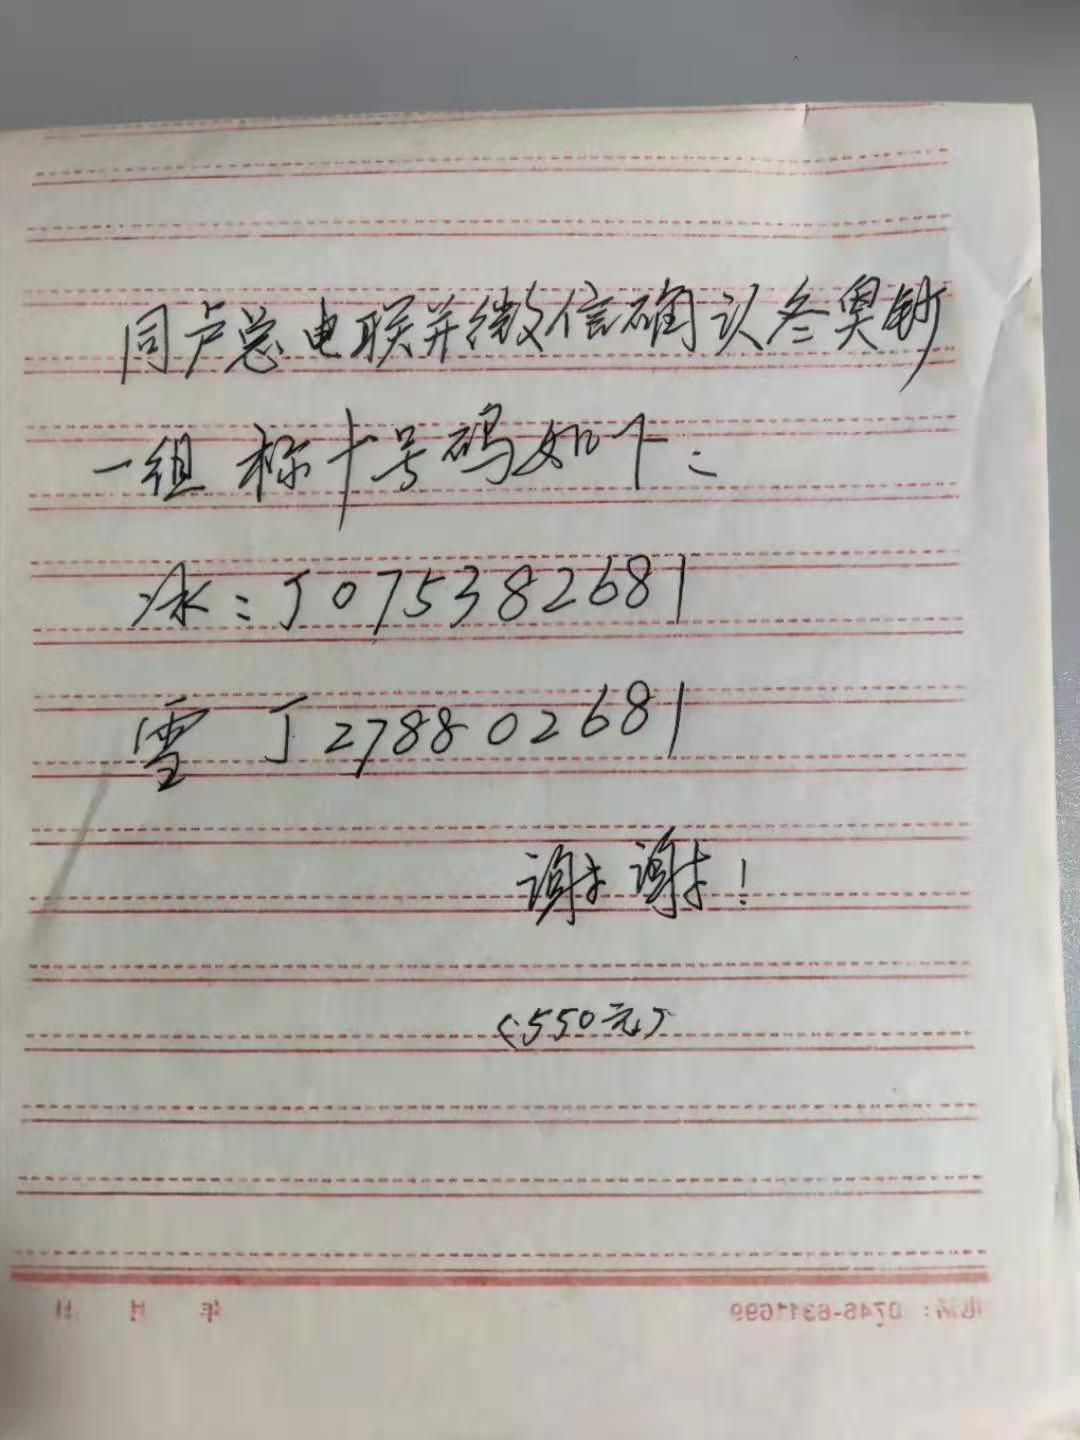 同卢总电联并微信确认冬奥钞
一组 标十号码如下:
冰: J075382681
雪 J278802681
谢谢!
(550元)
年 月 日
电话: 0746-6311699